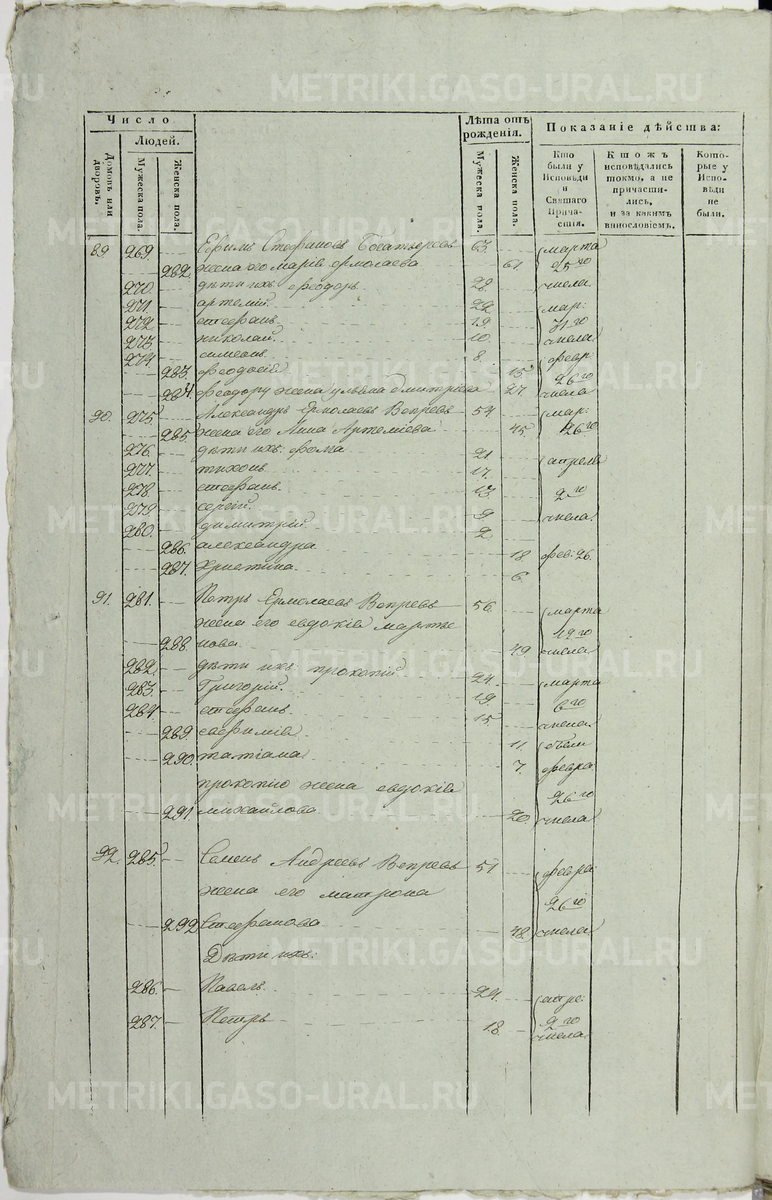 METRIKI.GASO-URAL.RU
Число
Людей.
Домовъ или дворовъ.
Мужеска пола.
Женска пола.
Лѣта отъ рожденія.
Мужеска пола.
Женска пола.
Показаніе дѣйства:
Кто были у Исповѣди и Святаго Прича-стія.
Ктожъ исповѣдались токмо, а не причасти-лись, и за какимъ винословіемъ.
Кото-рые у Испо-вѣди не были.
89 269. Ефимъ Стефановъ Богатыревъ 63. марта
282. жена его марія ермолаева 61 25го
270. дѣти ихъ: феодоръ 28. числа
271. артемій. 22 мар:
272. стефанъ. 19 31го
273. николай. 10. числа
274. симеонъ. 8. февр
283. феодосія 15 26го
284. феодору жена ульяна дмитріева 27. числа
90. 275. Александръ Ермолаевъ Вепревъ 54. мар:
285. жена его Анна Артеміева 45. 26го
276. дѣти ихъ: фома 21
277. тихонъ 17. апреля
278. стефанъ. 13. 2го
279. сергій. 9 числа
280. димитрій 2
286. александра 18 фев: 26.
287. Христина. 6.
91. 281. Петръ Ермолаевъ Вепревъ 56. марта
жена его евдокія марты 19го
288. нова. 49 числа
282. дѣти ихъ: прокопій 24. марта
283. Григорій. 19 6го
284. стефанъ. 15. числа
289. евфимія 11.
290. татіана 7. февра
прокопію жена евдокія 26го
291 михайлова 20. числа
92. 285. Семенъ Андреевъ Вепревъ 51 февра
жена его матрона 26го
292 Стефанова 48. числа
Дѣти ихъ:
286. Павелъ. 24. апре:
287. Петръ 18. 2го
числа